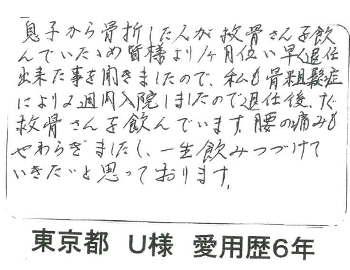 息子から骨折した人が救骨さんを飲
んでいたため皆様より1ヶ月位い早く退任
出来た事を聞きましたので、私も骨粗鬆症
により2週間入院しましたので退任後、すぐ
救骨さんを飲んでいます。腰の痛みも
やわらぎましたし、一生飲みつづけて
いきたいと思っております。
東京都 U様 愛用歴6年